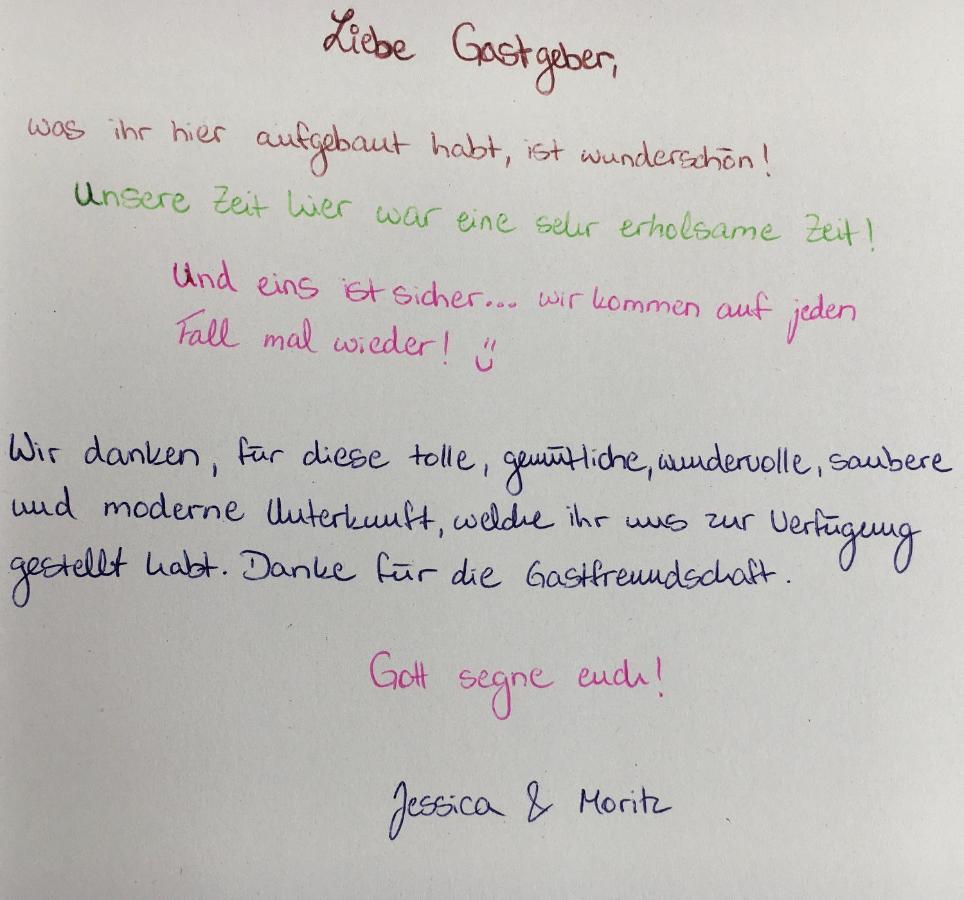 Liebe Gastgeber,
was ihr hier aufgebaut habt, ist wunderschön!
Unsere Zeit hier war eine sehr erholsame Zeit!
Und eins ist sicher... wir kommen auf jeden
Fall mal wieder! Ü
Wir danken, für diese tolle, gemütliche, wundervolle, saubere
und moderne Unterkunft, welche ihr uns zur Verfügung
gestellt habt. Danke für die Gastfreundschaft.
Gott segne euch!
Jessica & Moritz